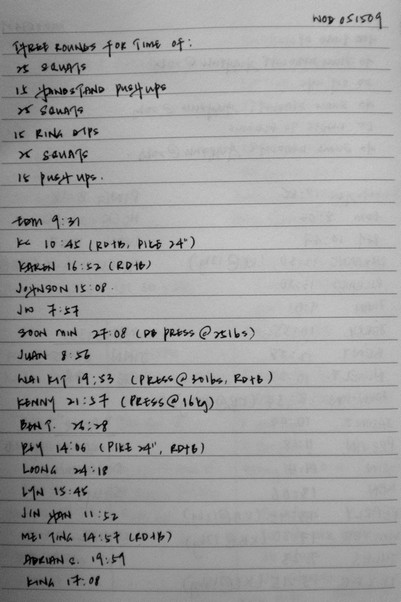 WOD 051509
THREE ROUNDS FOR TIME OF:
25 SQUATS
15 HANDSTAND PUSHUPS
25 SQUATS
15 RING DIPS
25 SQUATS
15 PUSHUPS.
TOM 9:31
KC 10:45 (RDTB, PIKE 24")
KAREN 16:52 (RDTB)
JOHNSON 15:08.
JW 7:57
SOON MIN 27:08 (DB PRESS @ 25lbs)
JUAN 8:56
WAI KIT 19:53 (PRESS @ 30lbs, RDTB)
KENNY 21:57 (PRESS @ 16kg)
BEN T. 26:28
14:06 (PIKE 24", RDTB)
LOONG 24:18
LYN 15:45
JIN YAN 11:52
MEI TING 14:57 (RDTB)
ADRIAN C. 19:59
KING 17:08